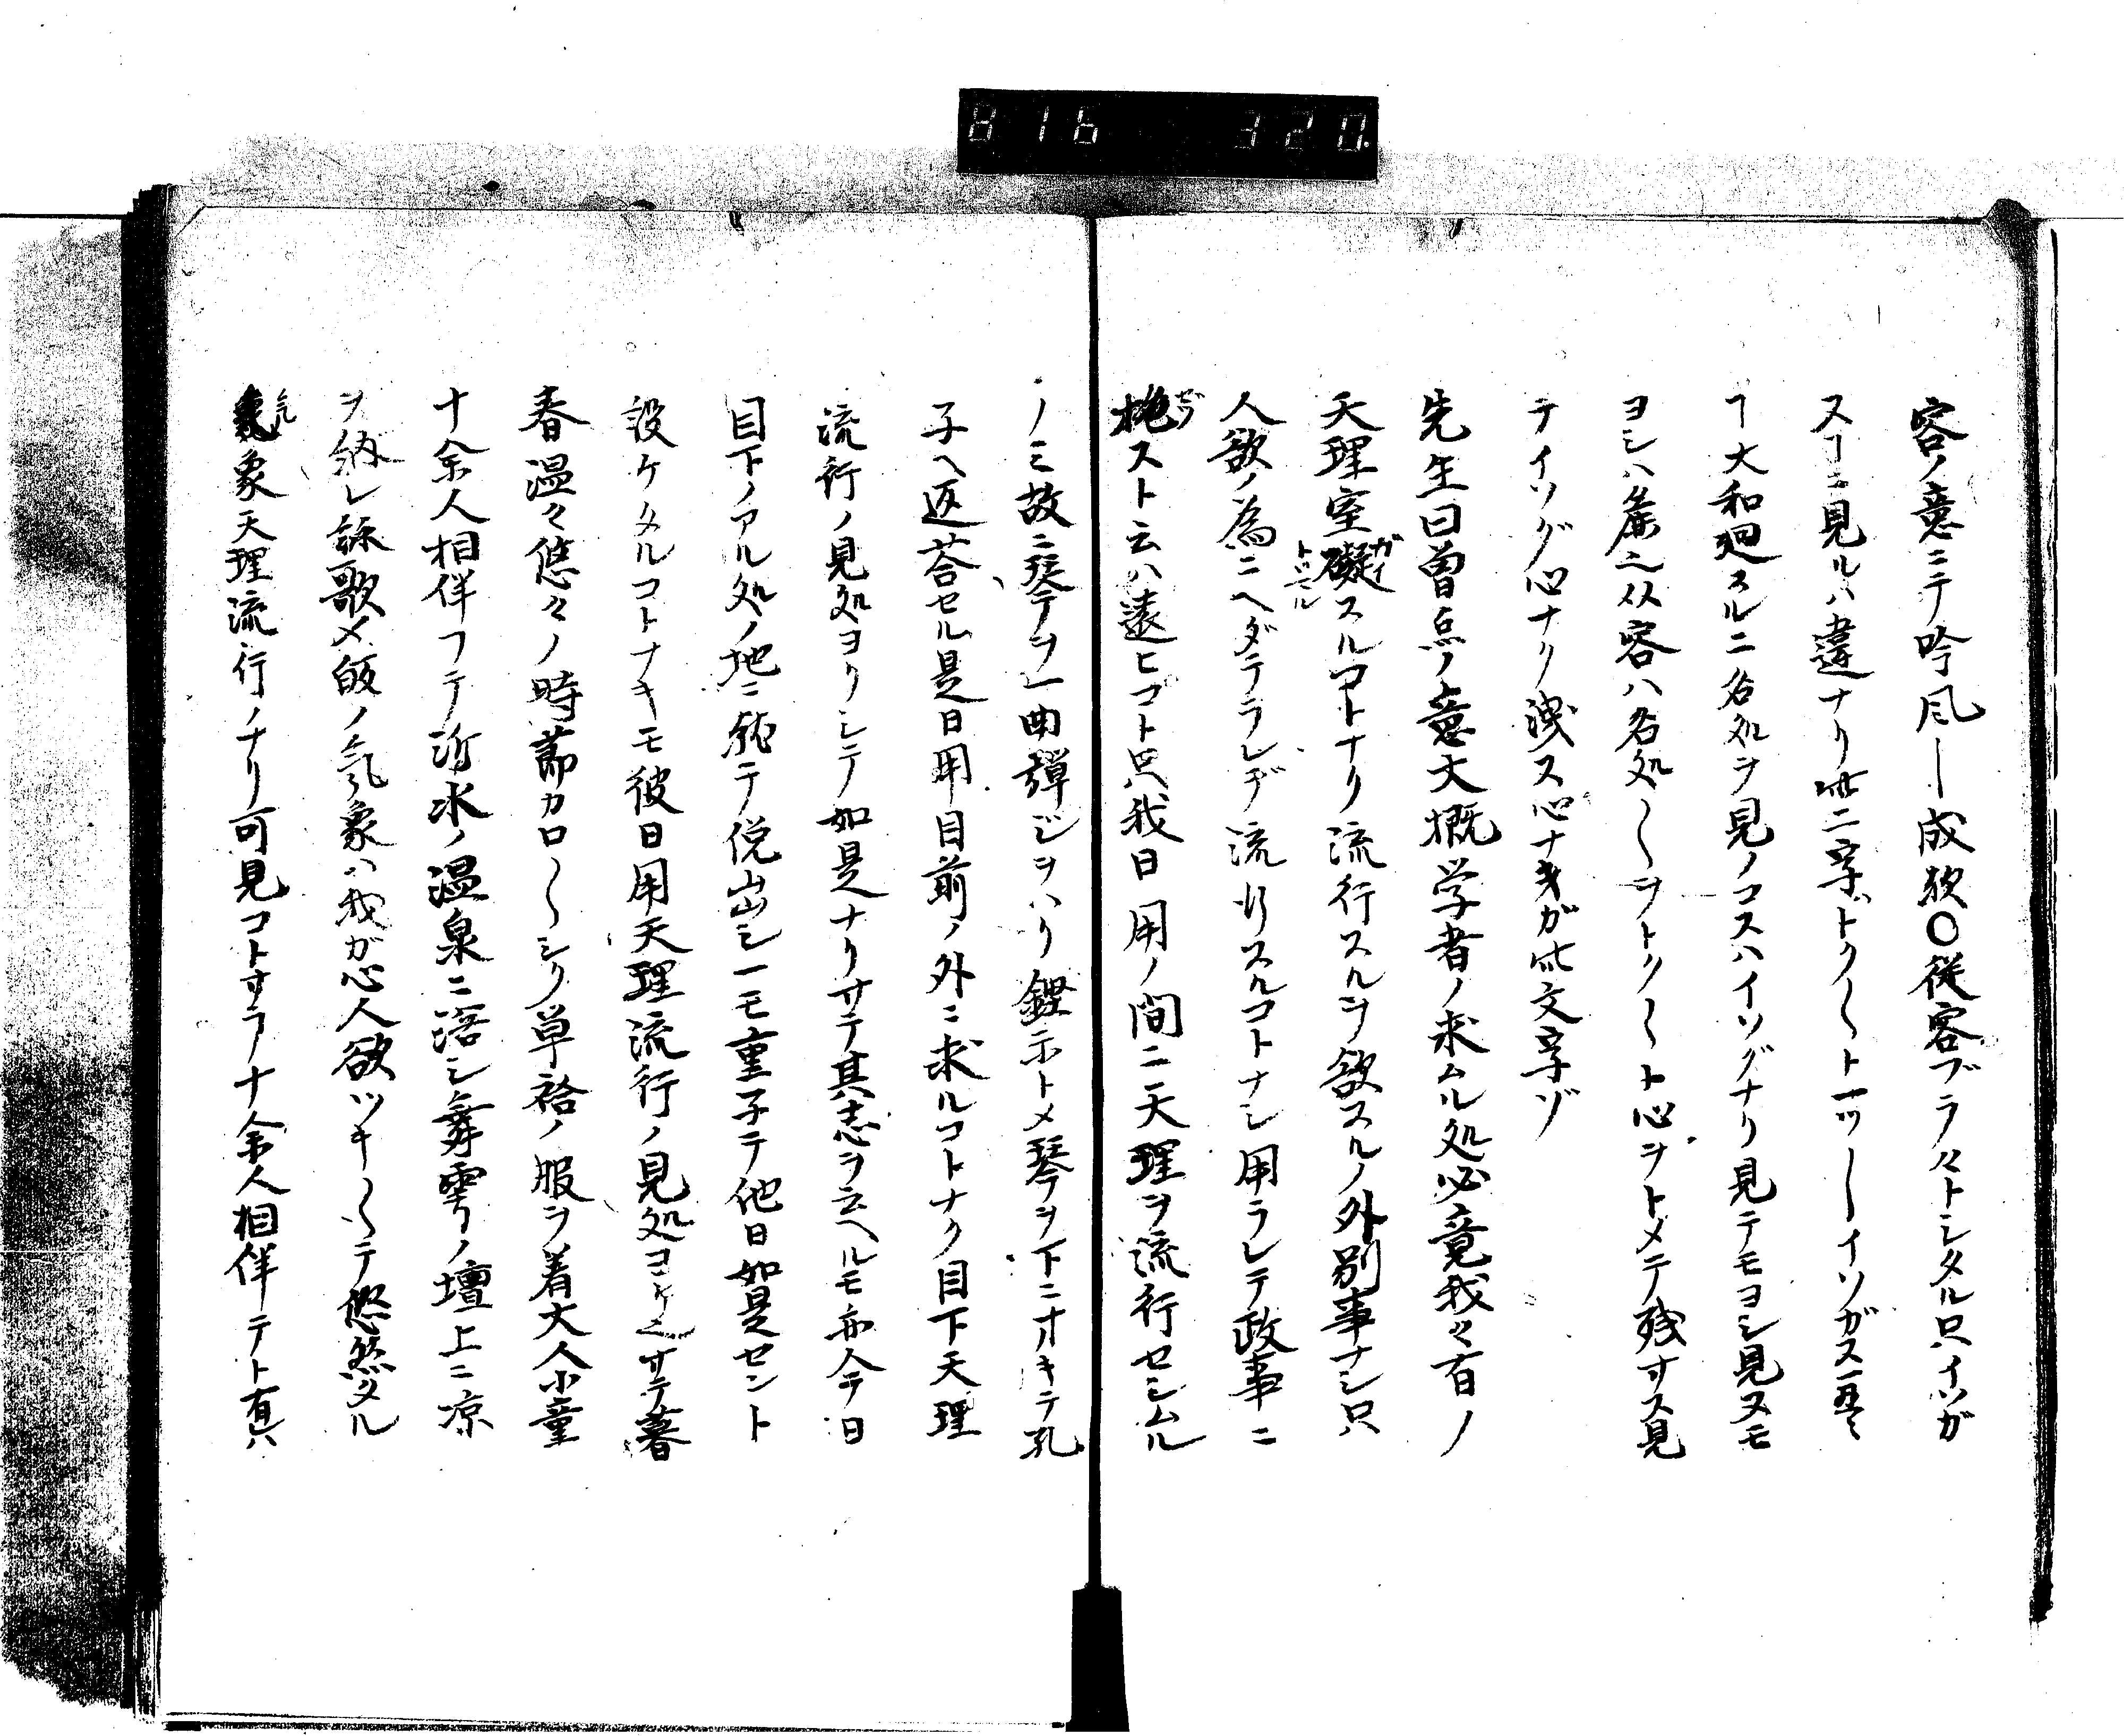 816 320.
容ノ意ニテ吟風ー成欤〇従容ブラ々トシタル只イソガ
スヿニ見ルハ違ナリ此二字トク〱トーツーイソガス
ヿ大和廻スルニ名処ヲ見ノコスハイソグナリ見テモヨシ見ヌモ
ヨシハ麁也从容ハ名処〱ヲトク〱ト心ヲトメテ残サス見
テイソグ心ナク洩ス心ナキガ此文字ゾ
先生曰曽点ノ意大概学者ノ求ムル処必竟我々有ノ
天理室礙スルコトナク流行スルヲ欲スルノ外別事ナシ只
ガイ
トヾコヲル
人欲ノ為ニヘダテラレヂ流行スルコトナシ用ラレテ政事ニ
施スト云ハ遠ヒコト只我日用ノ間ニ天理ヲ流行セシムル
ノミ故ニ琴ヲ一曲弾ジヲハリ鏗尓トメ琴ヲ下ニオキテ孔
子ヘ返荅セル是日用目前ノ外ニ求ルコトナク目下天理
流行ノ見処ヨリシテ如是ナリサテ其志ヲ云ヘルモ亦今日
目下ノアル処ノ地ニ就テ倪出シ一モ重子テ他日如是セント
設ケタルコトナキモ彼日用天理流行ノ見処ヨケ也サテ暮
春温々悠々ノ時節カロ〱シク単袷ノ服ヲ着大人小童
十余人相伴フテ沂水ノ温泉ニ浴シ舞雩ノ壇上ニ凉
ヲ納レ詠歌メ皈ノ気象ハ我ガ心人欲ツキ〱テ悠然タル
気
象天理流行ノナリ可見コトサラナ余人相伴テト有ハ